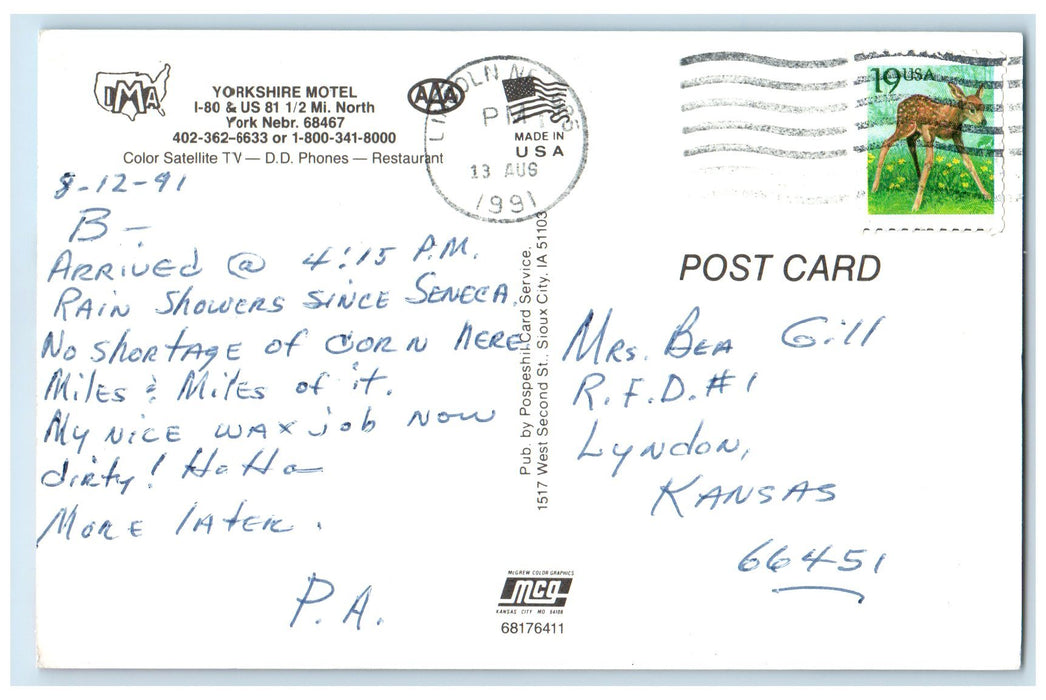 IMA
YORKSHIRE MOTEL
I-80 & US 81 1/2 Mi. North
York Nebr. 68467
402-362-6633 or 1-800-341-8000
Color Satellite TV — D.D. Phones — Restaurant
AAA
LINCOLN
PM
13 AUG
1991
MADE IN
USA
19 USA
8-12-91
B-
ARRIVED @ 4:15 P.M.
RAIN SHOWERS SINCE SENECA.
No shortage of CORN HERE
Miles & Miles of it.
My NICE WAX job NOW
dirty! Ha Ha
MORE LATER.
P.A.
Pub. by Pospeshil Card Service,
1517 West Second St., Sioux City, IA 51103
POST CARD
MRS. BEA Gill
R.F.D. #1
Lyndon,
KANSAS
66451
McGREW COLOR GRAPHICS
mcg
KANSAS CITY MO 64108
68176411